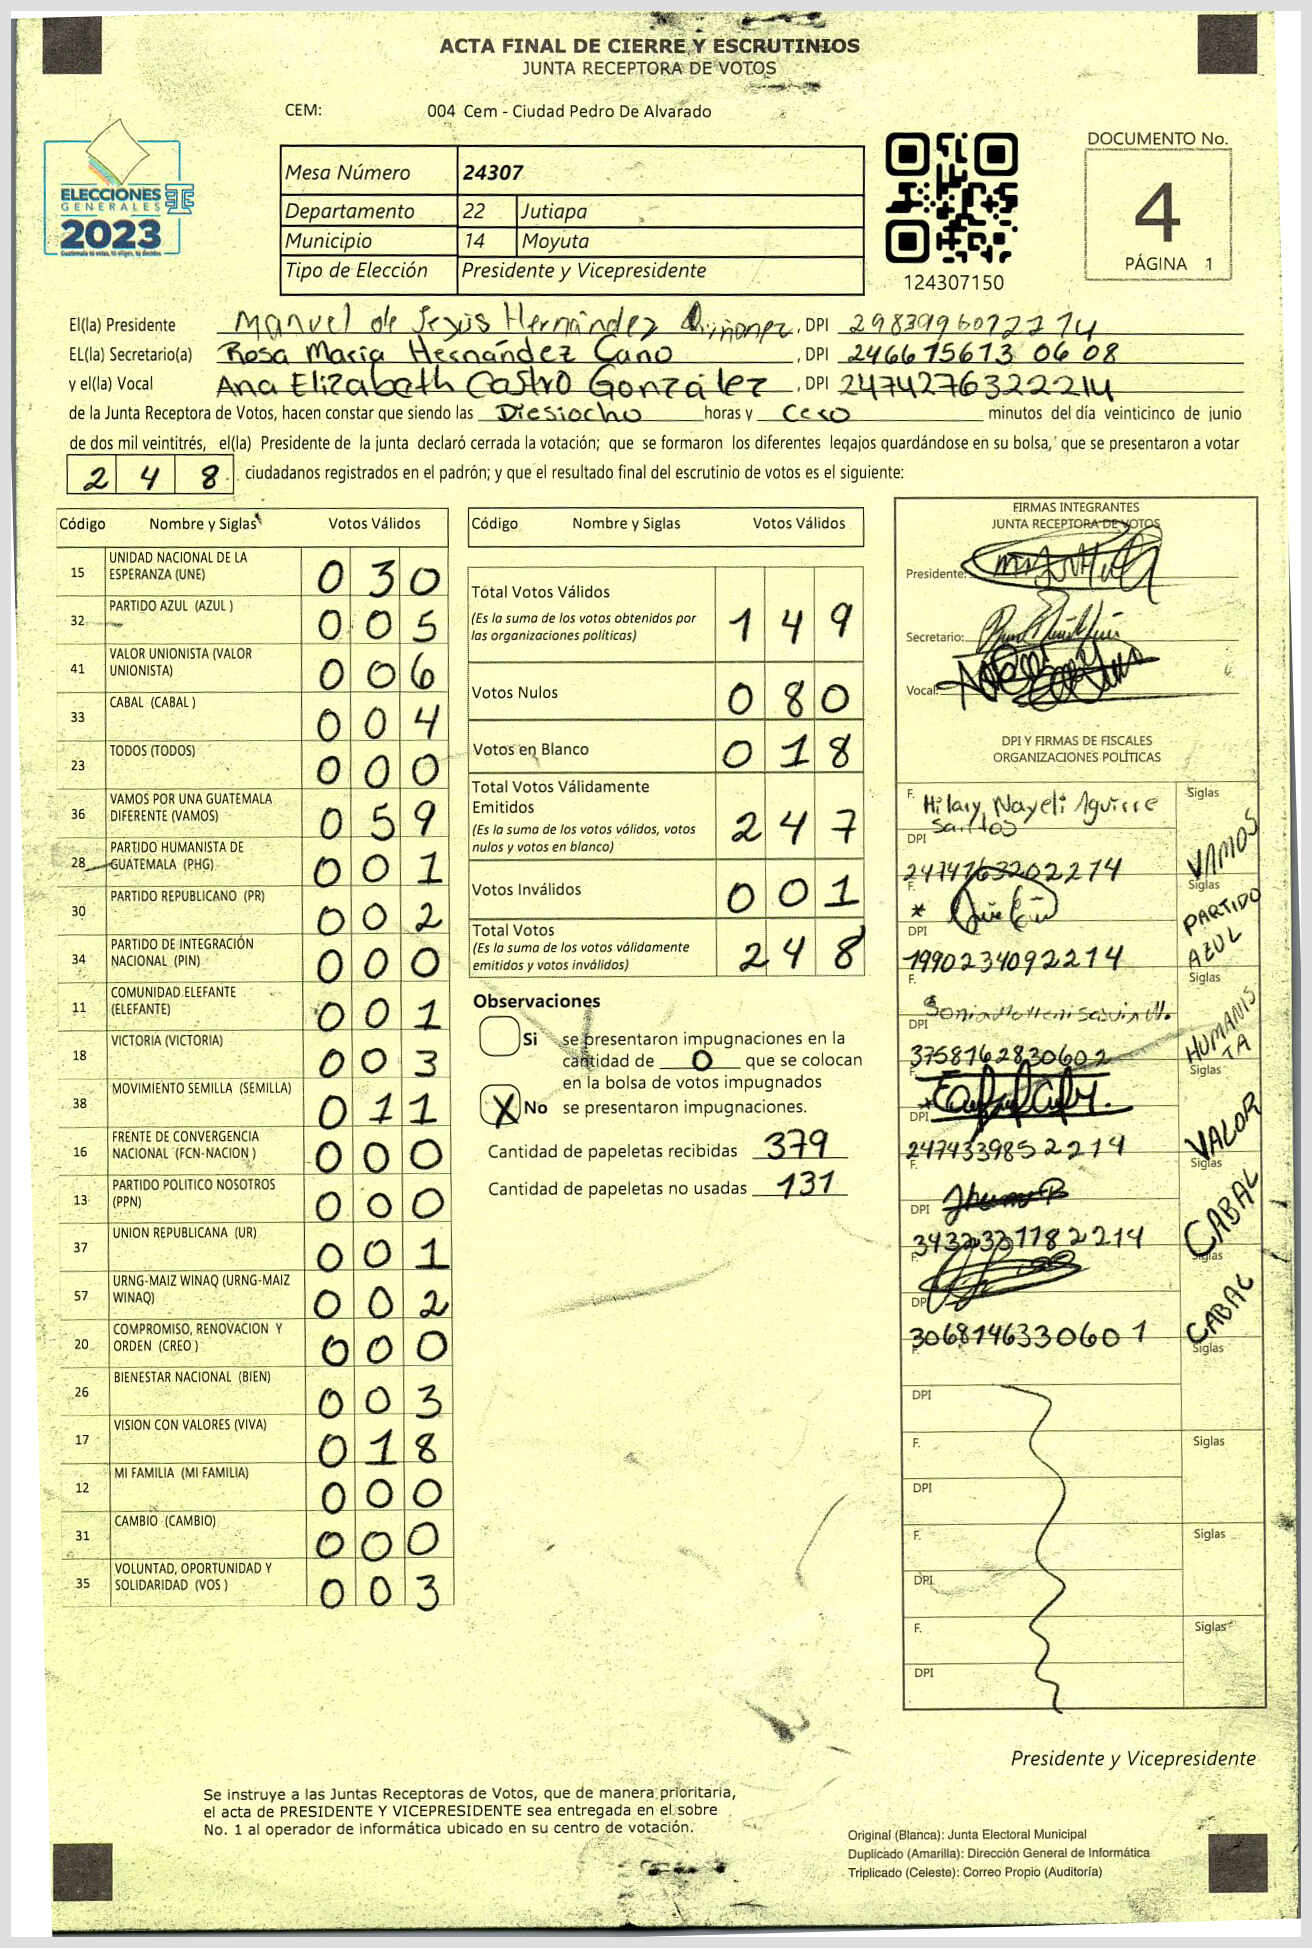 ACTA FINAL DE CIERRE Y ESCRUTINIOS
JUNTA RECEPTORA DE VOTOS
CEM: 004 Cem - Ciudad Pedro De Alvarado
ELECCIONES
GENERALES
2023
Guatemala tú votas, tú eliges, tú decides
Mesa Número 24307
Departamento 22 Jutiapa
Municipio 14 Moyuta
Tipo de Elección Presidente y Vicepresidente
124307150
DOCUMENTO No.
4
PÁGINA 1
El(la) Presidente Manuel de Jesús Hernández Quiñonez, DPI 2983996012214
EL(la) Secretario(a) Rosa María Hernández Cano, DPI 246615613 0608
y el(la) Vocal Ana Elizabeth Castro González, DPI 2474276322214
de la Junta Receptora de Votos, hacen constar que siendo las Diesiocho horas y Cero minutos del día veinticinco de junio
de dos mil veintitrés, el(la) Presidente de la junta declaró cerrada la votación; que se formaron los diferentes legajos quardándose en su bolsa, que se presentaron a votar
2 4 8 ciudadanos registrados en el padrón; y que el resultado final del escrutinio de votos es el siguiente:
Código Nombre y Siglas Votos Válidos
15 UNIDAD NACIONAL DE LA ESPERANZA (UNE) 0 3 0
32 PARTIDO AZUL (AZUL ) 0 0 5
41 VALOR UNIONISTA (VALOR UNIONISTA) 0 0 6
33 CABAL (CABAL ) 0 0 4
23 TODOS (TODOS) 0 0 0
36 VAMOS POR UNA GUATEMALA DIFERENTE (VAMOS) 0 5 9
28 PARTIDO HUMANISTA DE GUATEMALA (PHG) 0 0 1
30 PARTIDO REPUBLICANO (PR) 0 0 2
34 PARTIDO DE INTEGRACIÓN NACIONAL (PIN) 0 0 0
11 COMUNIDAD ELEFANTE (ELEFANTE) 0 0 1
18 VICTORIA (VICTORIA) 0 0 3
38 MOVIMIENTO SEMILLA (SEMILLA) 0 1 1
16 FRENTE DE CONVERGENCIA NACIONAL (FCN-NACION ) 0 0 0
13 PARTIDO POLITICO NOSOTROS (PPN) 0 0 0
37 UNION REPUBLICANA (UR) 0 0 1
57 URNG-MAIZ WINAQ (URNG-MAIZ WINAQ) 0 0 2
20 COMPROMISO, RENOVACION Y ORDEN (CREO ) 0 0 0
26 BIENESTAR NACIONAL (BIEN) 0 0 3
17 VISION CON VALORES (VIVA) 0 1 8
12 MI FAMILIA (MI FAMILIA) 0 0 0
31 CAMBIO (CAMBIO) 0 0 0
35 VOLUNTAD, OPORTUNIDAD Y SOLIDARIDAD (VOS ) 0 0 3
Código Nombre y Siglas Votos Válidos
Total Votos Válidos 1 4 9
(Es la suma de los votos obtenidos por
las organizaciones políticas)
Votos Nulos 0 8 0
Votos en Blanco 0 1 8
Total Votos Válidamente
Emitidos 2 4 7
(Es la suma de los votos válidos, votos
nulos y votos en blanco)
Votos Inválidos 0 0 1
Total Votos 2 4 8
(Es la suma de los votos válidamente
emitidos y votos inválidos)
Observaciones
Si se presentaron impugnaciones en la
cantidad de 0 que se colocan
en la bolsa de votos impugnados
X No se presentaron impugnaciones.
Cantidad de papeletas recibidas 379
Cantidad de papeletas no usadas 131
FIRMAS INTEGRANTES
JUNTA RECEPTORA DE VOTOS
Presidente:
Secretario:
Vocal:
DPI Y FIRMAS DE FISCALES
ORGANIZACIONES POLÍTICAS
F. Hilary Nayeli Aguirre Santos Siglas VAMOS
DPI 2474763202214
F. Siglas PARTIDO AZUL
DPI 1990234092214
F. Sonia Siglas HUMANISTA
DPI 3758162830602
F. Siglas VALOR
DPI 2474339852214
Siglas CABAL
DPI 3432331182214
F. Siglas CABAL
DPI 3068146330601
F. Siglas
DPI
F. Siglas
DPI
F. Siglas
DPI
F. Siglas
DPI
Presidente y Vicepresidente
Se instruye a las Juntas Receptoras de Votos, que de manera prioritaria,
el acta de PRESIDENTE Y VICEPRESIDENTE sea entregada en el sobre
No. 1 al operador de informática ubicado en su centro de votación.
Original (Blanca): Junta Electoral Municipal
Duplicado (Amarilla): Dirección General de Informática
Triplicado (Celeste): Correo Propio (Auditoría)